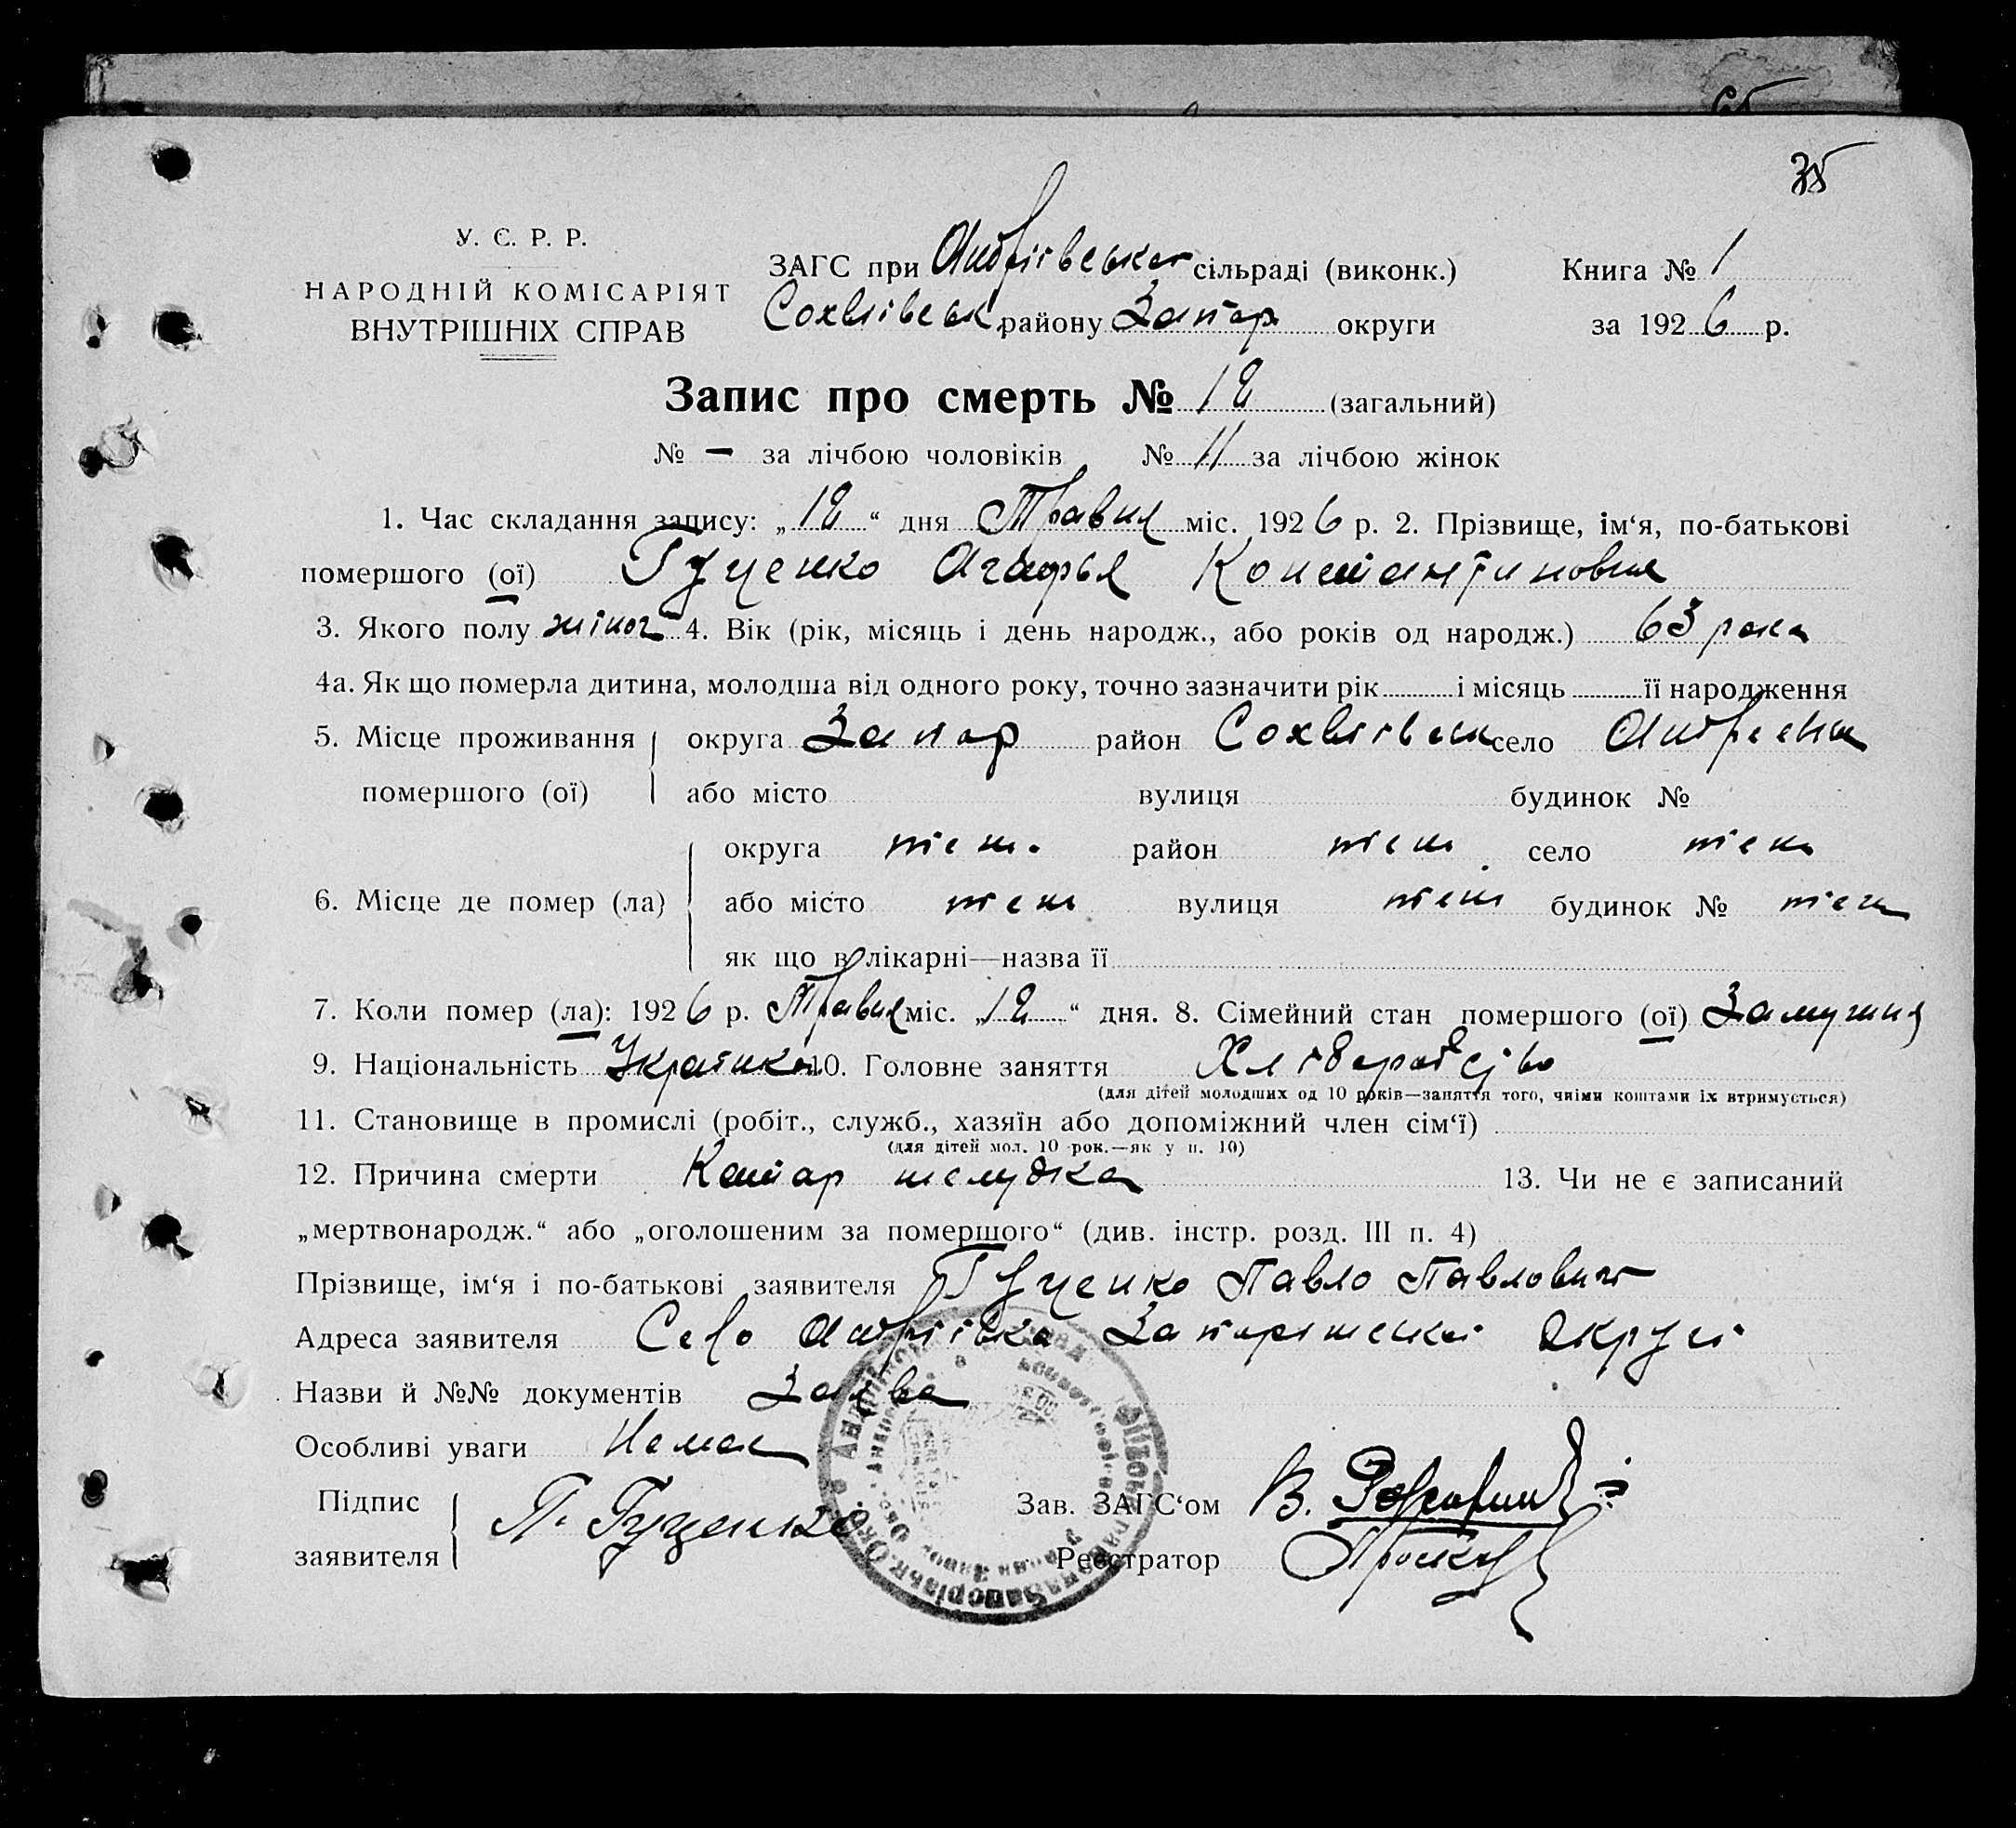 35
У. С. Р. Р.
НАРОДНІЙ КОМІСАРІЯТ
ВНУТРІШНІХ СПРАВ
ЗАГС при Андріівська сільраді (виконк.)
Книга № 1
Софіівськ. району Запор округи
за 1926 р.
Запис про смерть № 12 (загальний)
№ — за лічбою чоловіків № 11 за лічбою жінок
1. Час складання запису: „12“ дня Травня міс. 1926 р. 2. Прізвище, ім‘я, по-батькові
помершого (ої) Гуценко Агафья Константиновна
3. Якого полу жіноч 4. Вік (рік, місяць і день народж., або років од народж.) 63 рока
4а. Як що померла дитина, молодша від одного року, точно зазначити рік і місяць її народження
5. Місце проживання округа Запор район село
помершого (ої) або місто вулиця будинок №
округа теж. район теж село теж
6. Місце де помер (ла) або місто теж вулиця теж будинок № теж
як що в лікарні—назва її
7. Коли помер (ла): 1926 р. Травня міс. „12“ дня. 8. Сімейний стан помершого (ої) Замужня
9. Національність Українка 10. Головне заняття Хліборобство
(для дітей молодших од 10 років—заняття того, чиїми коштами їх втримується)
11. Становище в промислі (робіт., служб., хазяїн або допоміжний член сім‘ї)
(для дітей мол. 10 рок.—як у п. 10)
12. Причина смерти Катар желудка 13. Чи не є записаний
„мертвонародж.“ або „оголошеним за помершого“ (див. інстр. розд. III п. 4)
Прізвище, ім‘я і по-батькові заявителя Гуценко Павло Павлович
Адреса заявителя Село Андріівка Запоріжськоі Округи
Назви й №№ документів Заява
Особливі уваги Немає
Підпис
заявителя П. Гуценко
Зав. ЗАГС‘ом В.
Реєстратор